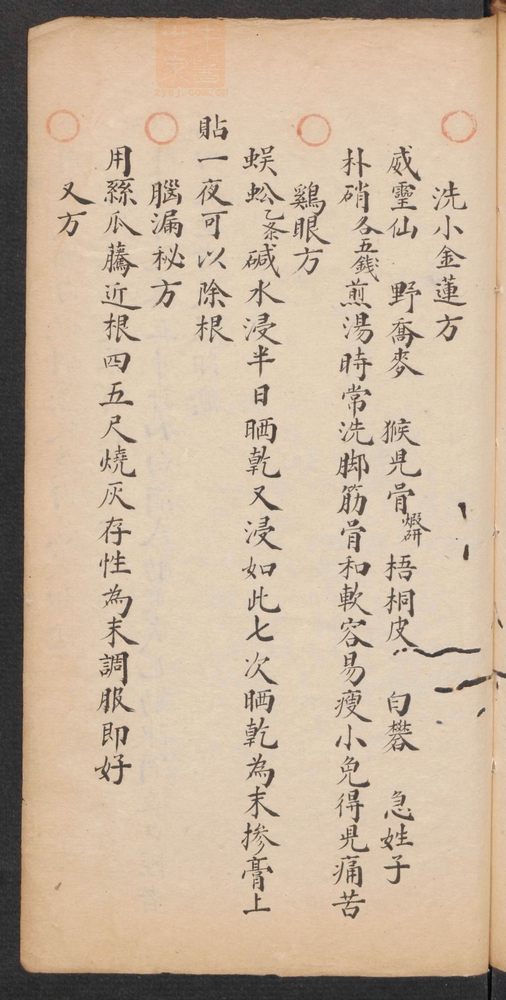 洗小金蓮方
威靈仙　野喬麥　猴兒骨煅研　梧桐皮　白礬　急姓子
朴硝各五錢煎湯時常洗脚筋骨和軟容易瘦小免得児痛苦
鷄眼方
蜈蚣乙条碱水浸半日晒乾又浸如此七次晒乾為末掺膏上
貼一夜可以除根
腦漏秘方
用絲瓜藤近根四五尺燒灰存性為末調服即好
又方